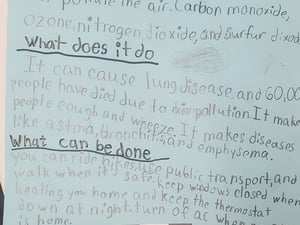 pollute the air. Carbon monoxide,
ozone, nitrogen dioxide, and surfur dixod
What does it do
It can cause lung disease, and 60,00
people have died due to pollution. It make
people cough and wheeze. It makes diseases
like astma, bronchitis, and emphysema.
What can be done
you can ride bikes, use public transport, and
walk when it's safe, keep windows closed when
healing you home and keep the thermostat
down at night. turn of ac when no
is home.